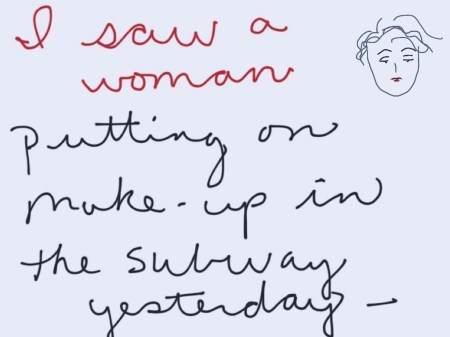 I saw a
woman
putting on
make-up in
the subway
yesterday -